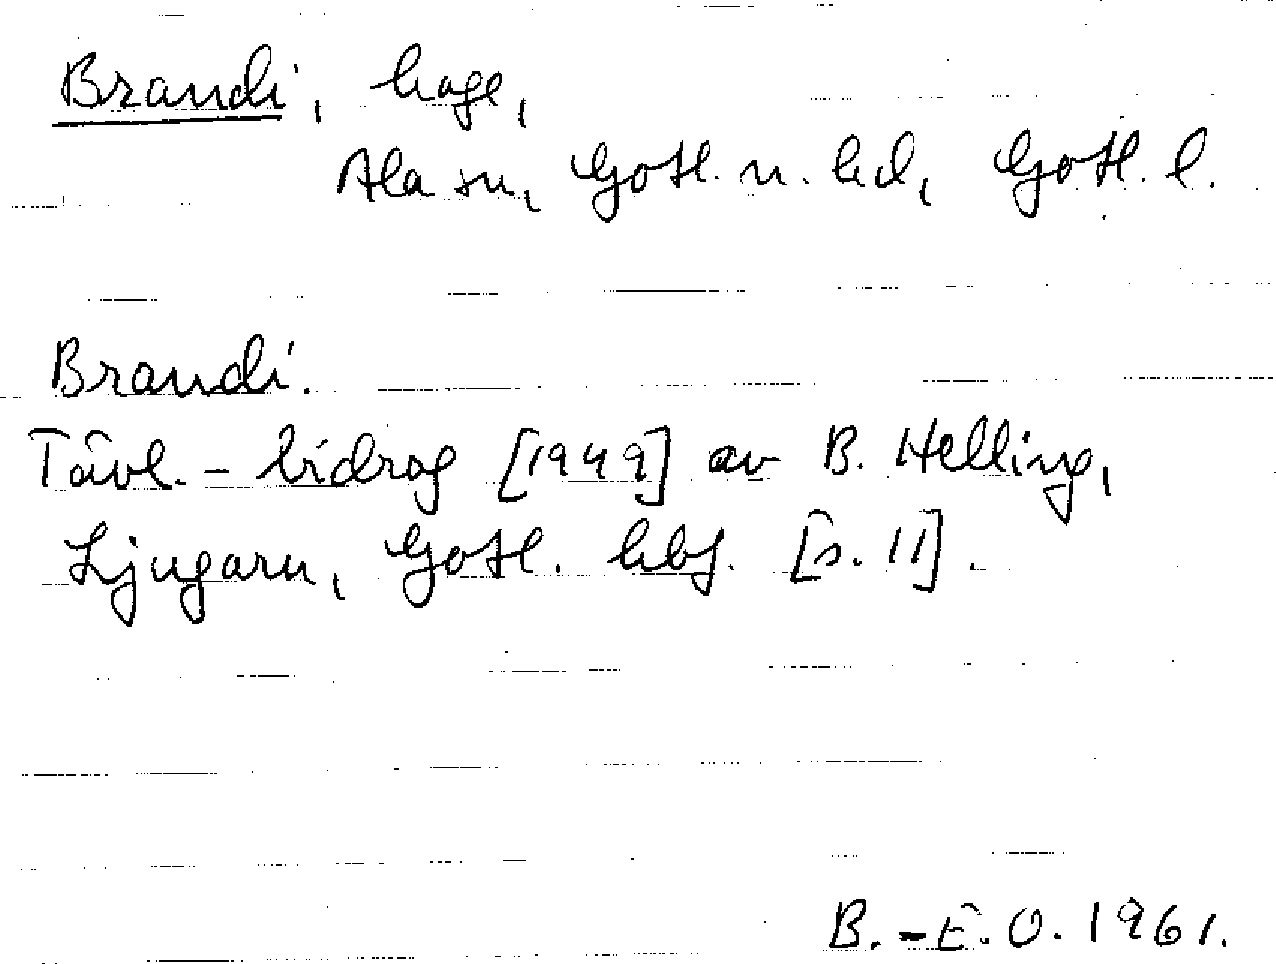 Brandi, hage,
Ala sn, Gotl. n. hd, Gotl. l.
Brandi.
Tävl.-bidrag [1949] av B. Helling,
Ljugarn, Gotl. hbf. [s. 11].
B.-E.O. 1961.